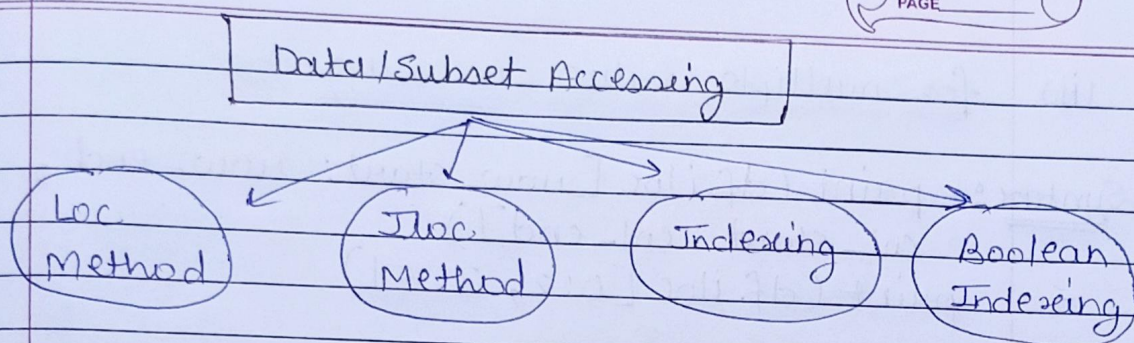 PAGE
Data/Subset Accessing
Loc
Method
Iloc
Method
Indexing
Boolean
Indexeing